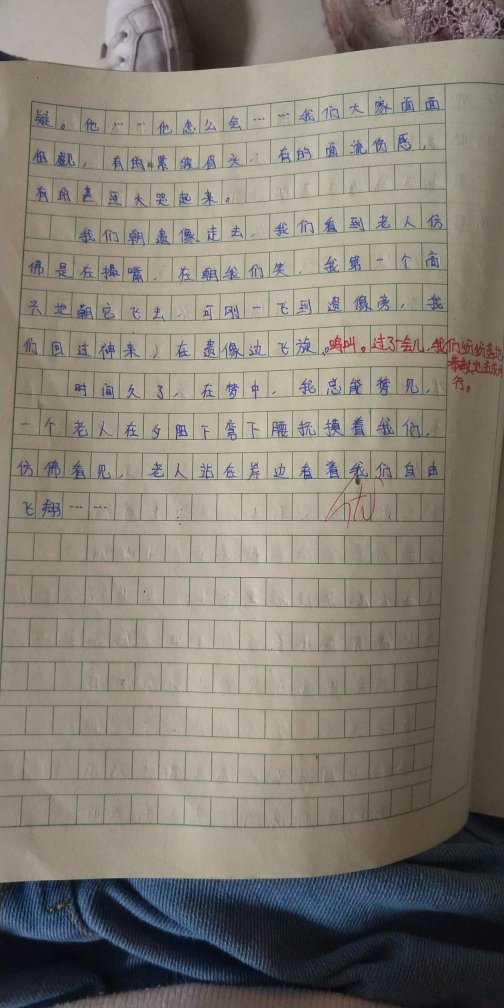 疑。他……他怎么会……我们大家面面
相觑，有的紧皱眉头，有的面流伤感，
有的甚至大哭起来。
我们朝遗像走去，我们看到老人仿
佛是在撮嘴，在朝我们笑，我第一个箭
头地朝它飞去，可刚一飞到遗像旁，我
们回过神来，在遗像边飞旋。鸣叫。过了会儿，我们纷纷
恭敬地
时间久了，在梦中，我总能梦见，
一个老人在夕阳下弯下腰抚摸着我们，
仿佛看见，老人站在岸边看着我们自由
飞翔……
优